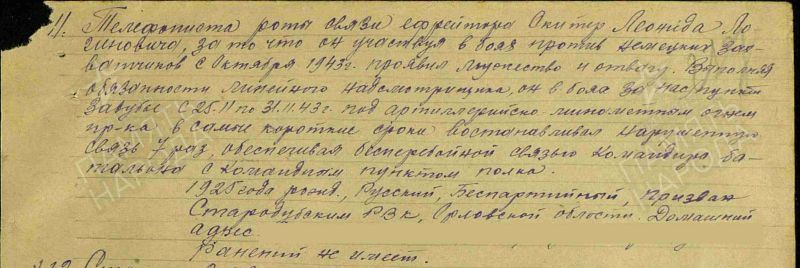 11. Телефониста роты связи ефрейтора Скитер Леонида Ло-
гиновича, за то что он участвуя в боях против немецких зах-
ватчиков с Октября 1943 г. проявил мужество и отвагу. Выполняя
обязанности линейного надсмотрщика, он в боях за нас. пункт
Завубье с 25.11 по 31.11.43 г. под артиллерийско минометным огнем
пр-ка в самые короткие сроки востанавливал нарушенную
связь 7 раз, обеспечивая бесперебойной связью командира ба-
тальона с командным пунктом полка.
1925 года рожд., Русский, Беспартийный, призван
Стародубским РВК, Орловской области. Домашний
адрес.
Ранений не имеет.